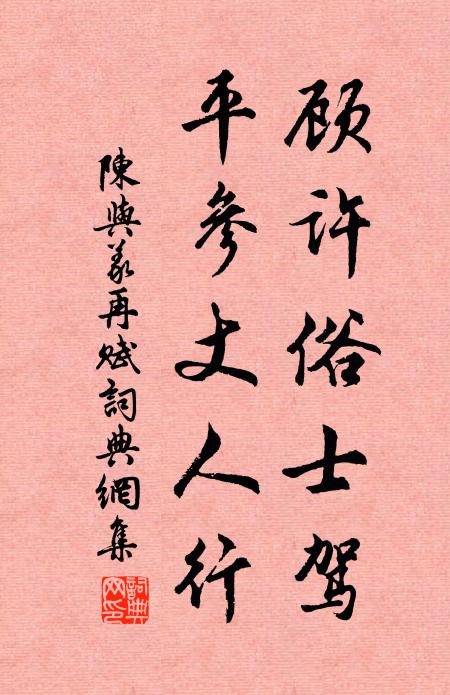 顾许俗士驾
平参丈人行
陳與義再赋詞典網集
詞典網印